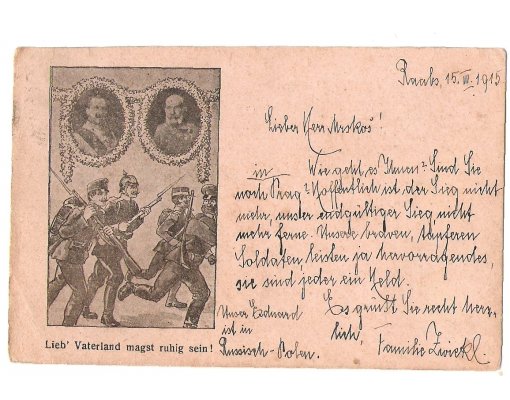 Raabs, 15. III. 1915
Lieber Herr Mrskoš!
Wie geht es Ihnen? Sind Sie
in
noch Prag? Hoffentlich ist der Sieg nicht
mehr, unser endgültiger Sieg nicht
mehr ferne. Unsere braven, tapferen
Soldaten leisten ja hervorragendes,
sie sind jeder ein Held.
Es grüßt Sie recht herz-
lich, Familie Zwickl.
Unser Eduard
ist in
Russisch-Polen.
Lieb' Vaterland magst ruhig sein!